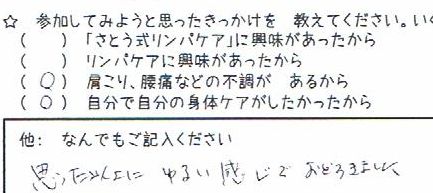 ☆ 参加してみようと思ったきっかけを 教えてください。い
( ) 「さとう式リンパケア」に興味があったから
( ) リンパケアに興味があったから
(○) 肩こり、腰痛などの不調が あるから
(○) 自分で自分の身体ケアがしたかったから
他: なんでもご記入ください
思った以上に ゆるい感じで おどろきました